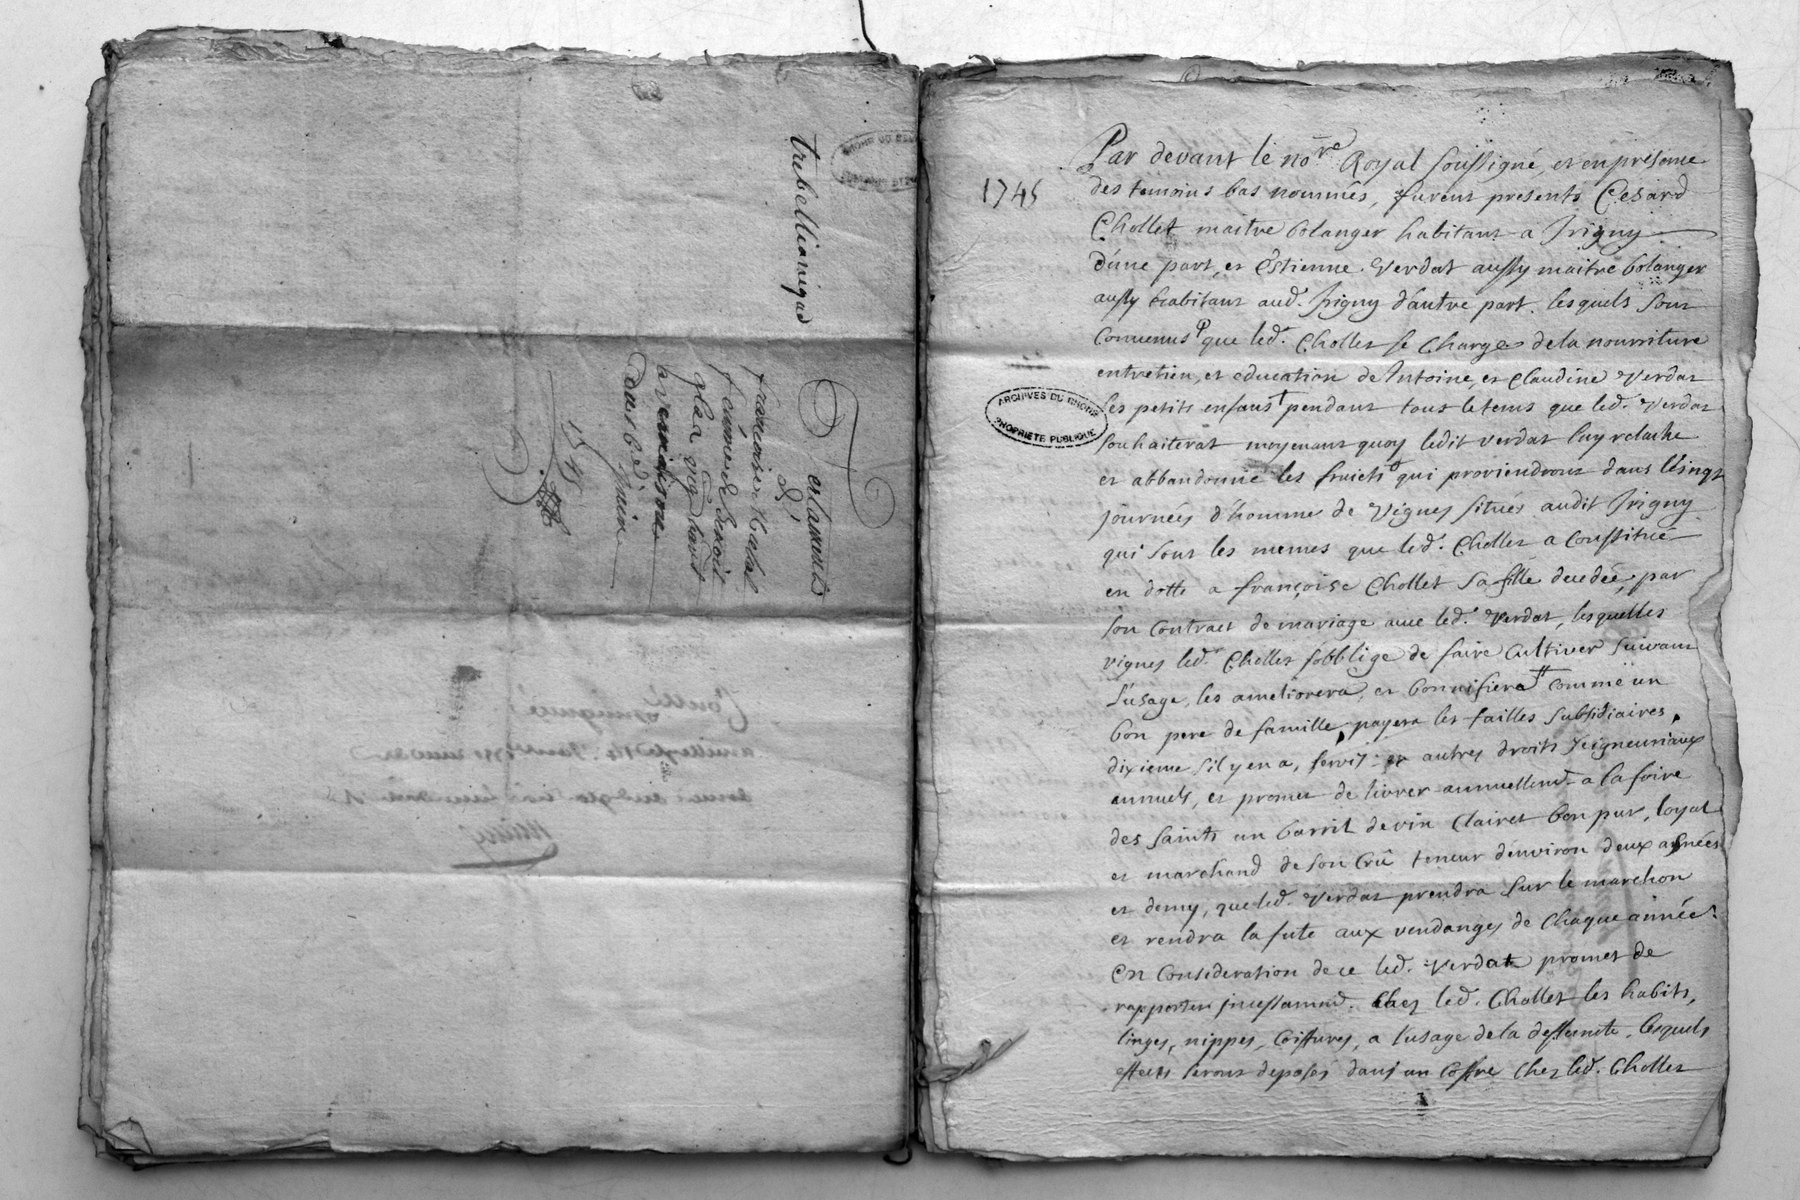 trebellianique
Testaments
de
françoise
femme de benoit
1745
ARCHIVES DU RHONE
PROPRIETE PUBLIQUE
1745
Par devant le no.re Royal soussigné, et en presence
des temoins bas nommés, furent presents Cesard
Chollet maitre bolanger habitant a Irigny
d'une part, et Estienne Verdat aussy maitre bolanger
aussy habitant aud. Irigny d'autre part. lesquels sont
Convenus que led. Chollet se Charge de la nourriture
entretien, et education de Antoine, et Claudine Verdat
ses petits enfans pendant tout le tems que led. Verdat
souhaiterat moyenant quoy ledit verdat luy relache
et abbandonne les fruicts qui proviendront dans
journées d'homme de Vignes situés audit Irigny
qui sont les memes que led. Chollet a Constitué
en dotte a françoise Chollet sa fille decedée, par
son Contract de mariage avec led. Verdat, lesquelles
vignes led. Chollet s'obblige de faire Cultiver suivant
l'usage, les ameliorera, et bonnifiera comme un
bon pere de famille, payera les tailles subsidiaires,
dixieme s'il y en a, servis et autres droits seigneuriaux
annuels, et promet de livrer annuellemt. a la foire
des saints un barril de vin Clairet bon pur, loyal
et marchand de son Crû teneur d'environ deux asnées
et demy, que led. Verdat prendra sur le marchon
et rendra la fute aux vendanges de Chaque année.
En Consideration de ce led. Verdat promet de
rapporter incessammt. Chez led. Chollet les habits,
linges, nippes, Coiffures, a l'usage de la deffunte, lesquels
effects seront deposés dans un Coffre Chez led. Chollet